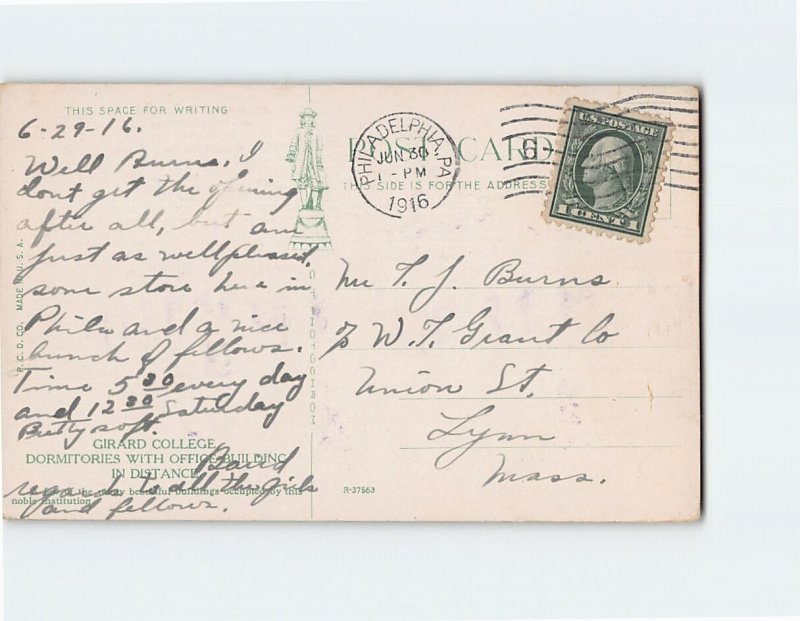 THIS SPACE FOR WRITING
6-29-16.
Well Burns, I
dont get the opening
after all, but am
just as well pleased,
some store here in
Phila and a nice
bunch of fellows.
Time 5 30 every day
and 12 30 Saturday
Pretty soft.
Baird
regards to all the girls
and fellows.
GIRARD COLLEGE,
DORMITORIES WITH OFFICE BUILDING
IN DISTANCE
of the many beautiful buildings occupied by this
noble institution
P. C. D. CO. MADE IN U. S. A.
POST CARD
THIS SIDE IS FOR THE ADDRESS
PHILADELPHIA, PA
JUN 30
1 - PM
1916
6
U.S. POSTAGE
1 CENT 1
Mr T. J. Burns
% W. T. Grant Co
Union St.
Lynn
Mass.
R-37563